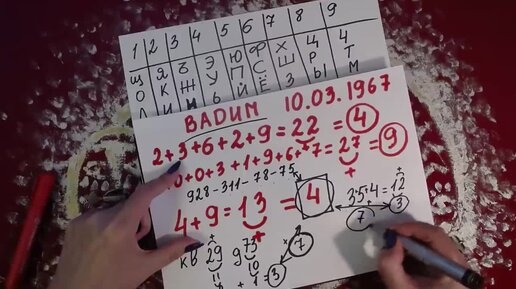 1 2 3 4 5 6 7 8 9
Щ Я Ъ Э Ю Ф Х Ц Ч
О К Ж У П С Ш Р Т
Л И Ь Й Ё З Ы М
ВАДИМ 10.03.1967
2+3+6+2+9=22=4
+0+3+1+9+6+7=27=9
928-311-78-75
4+9=13=4
3+5+4=12
7 3
кв 29 д 73
11 10
+1=3
×7